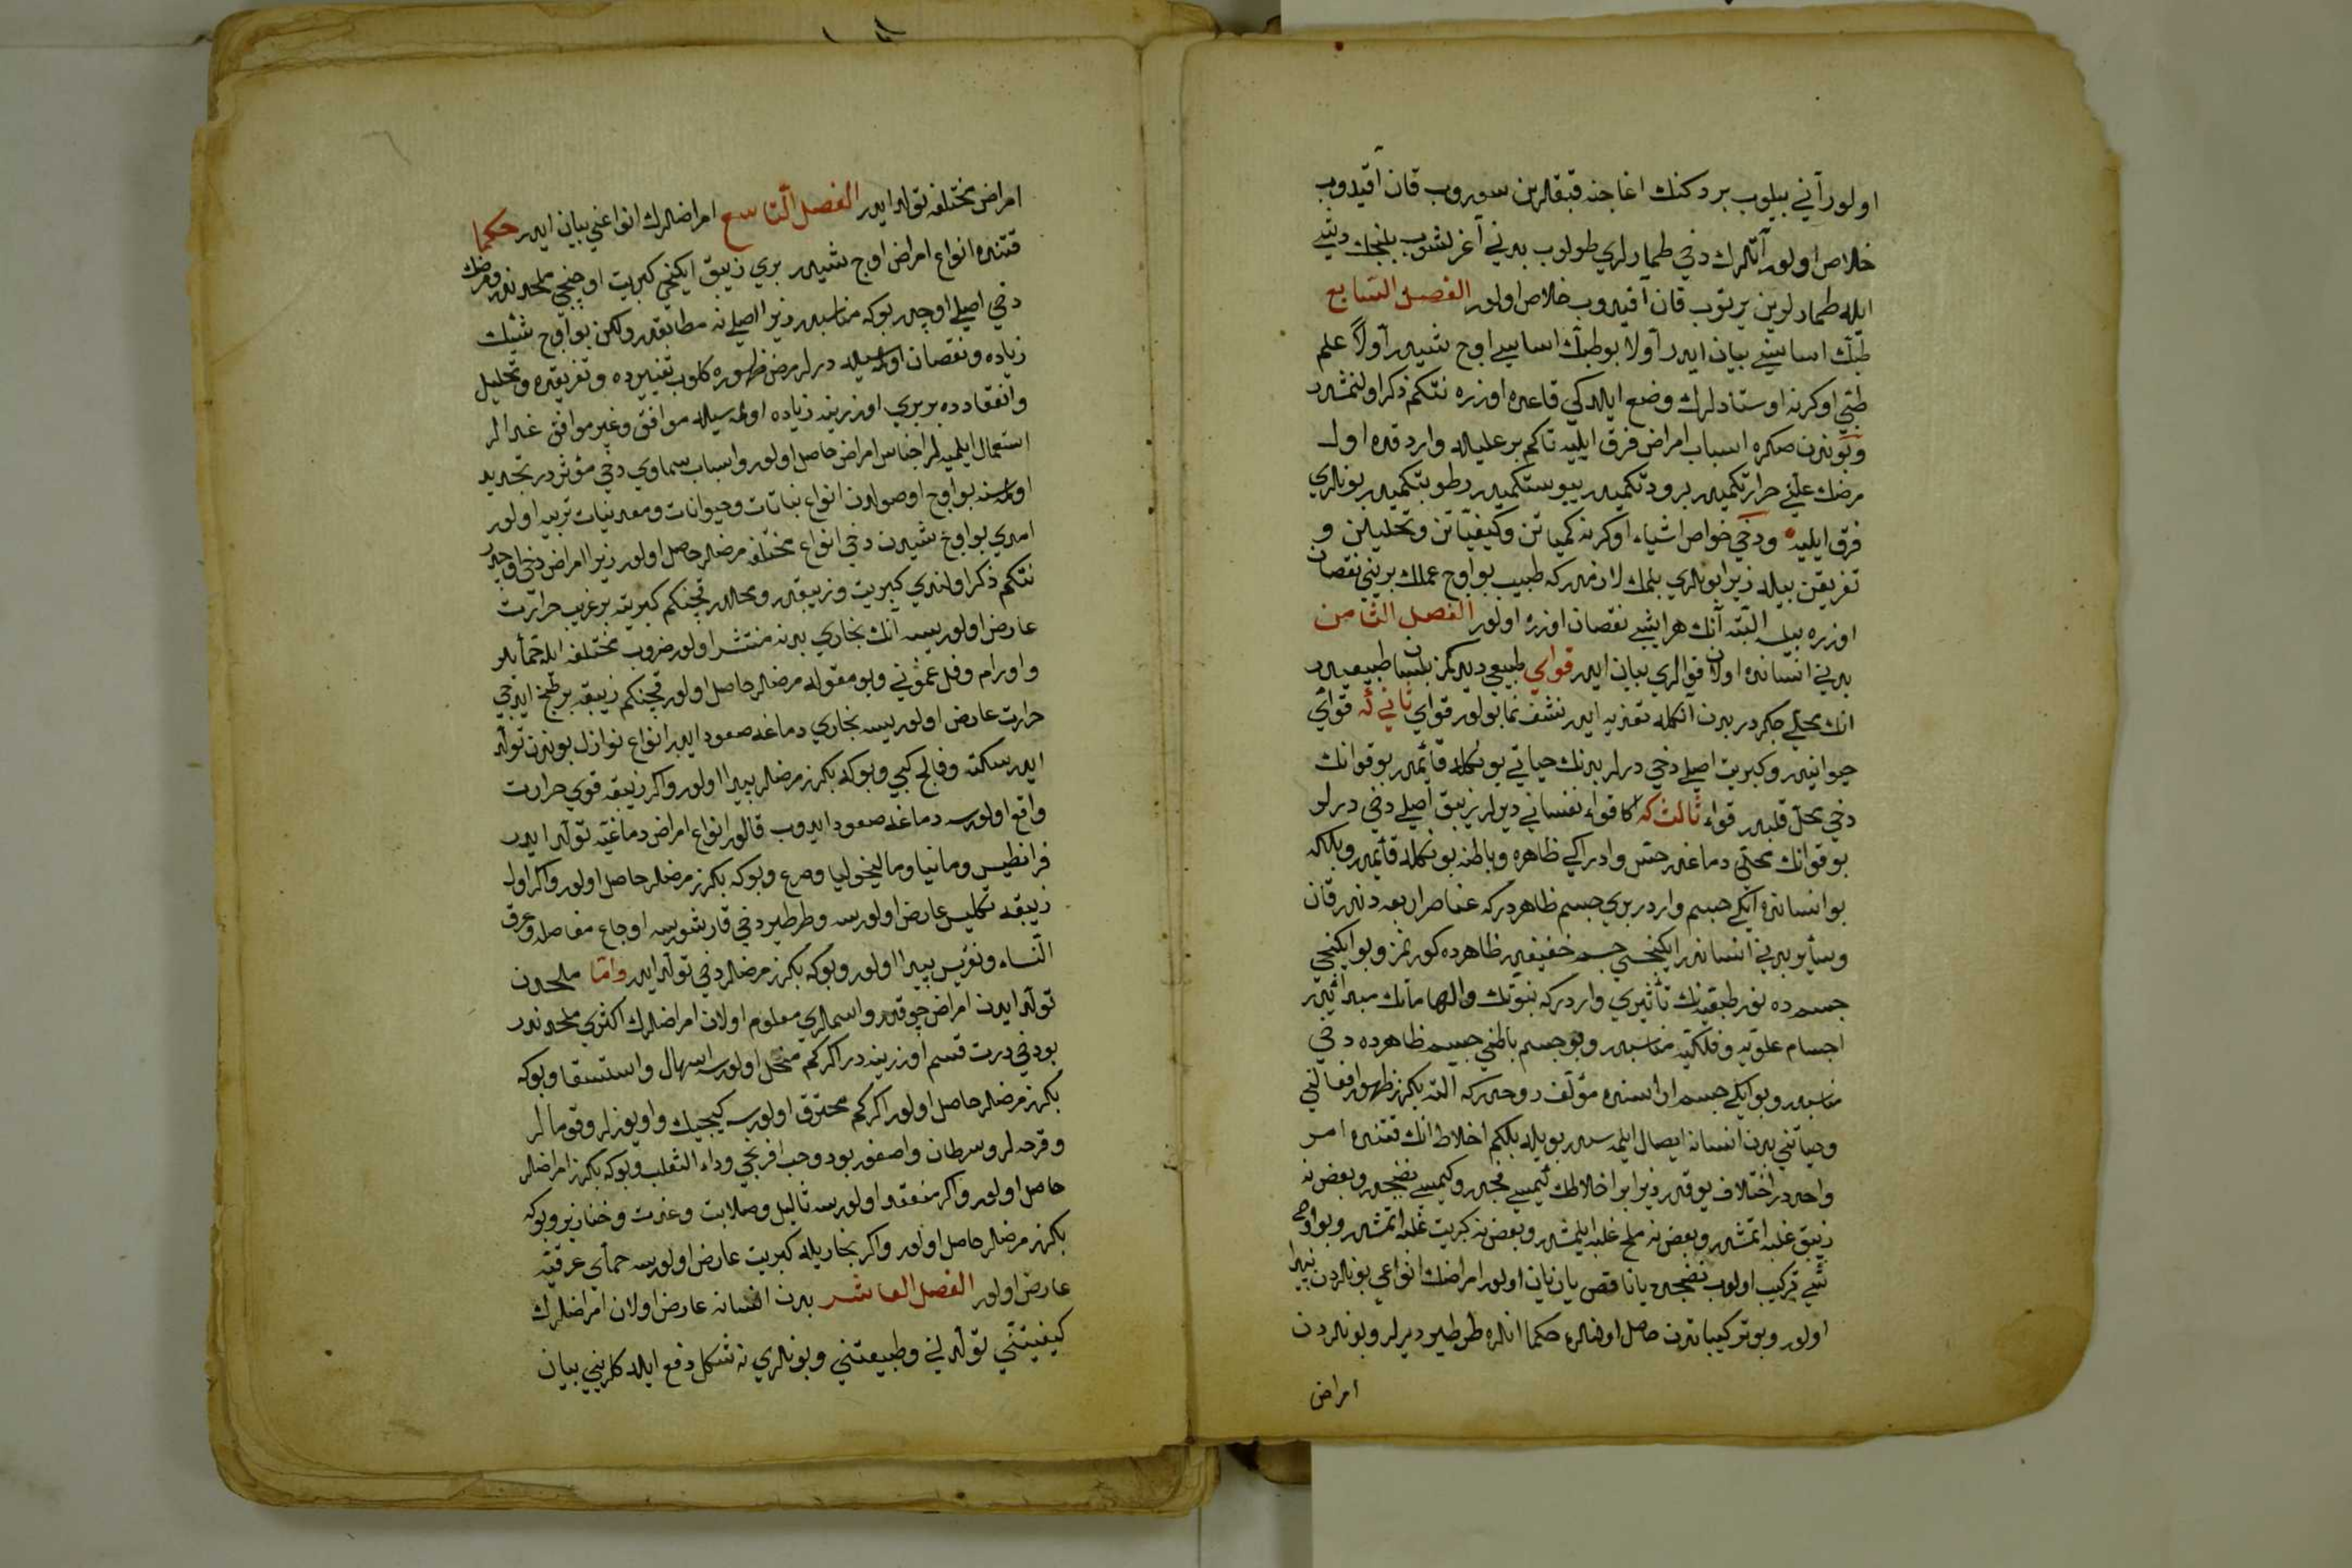 اولور آني بيلوب بر دكنك اغاجنه قبقالرين سوروب قان آقيدوب
خلاص اولور آتلرك دخي طمارلري طولوب بدني آغرلشوب يلنجك ديشي
ايله طمارلرين يرتوب قان آقيدوب خلاص اولور الفصل السابع
طبّك اساسيني بيان ايدر آولا بو طبّك اساسي اوج شيدر آولاً علم
طبّي اوكرنه اوستادلرك وضع ايلدكي قاعده اوزره نتكم ذكر اولنمشدر
وبوندن صكره اسباب امراض فرق ايليه تاكم بر عليله وارد قده اول
مرضك علتي حرارتكميدر برودتكميدر يبوستكميدر رطوبتكميدر بونلري
فرق ايليه ودخي خواص اشياء اوكرنه كمياتن وكيفيّاتن وتحليلن و
تفريقن بيله زيرا بونلري بلمك لازمدر كه طبيب بو اوج عملك بريني نقصان
اوزره بيلسه البته آنك هر ايشي نقصان اوزره اولور الفصل الثامن
بدني انسانده اولان قوالري بيان ايدر قواي طبيعي ديدكمز بلسان طبيعيدر
انك محلي جكردر بدن انكله تغذيه ايدر نشف نما بولور قواي ثانيه قواي
حيوانيدر وكبريت اصلي دخي درلر بدنك حياتي بونكله قائمدر بو قوانك
دخي محلّ قلبدر قواء ثالث كه اكا قواء نفساني ديرلر زيبق اصلي دخي درلر
بو قوانك محلّي دماغدر حسّ وادراكي ظاهره وباطنه بونكله قائمدر وبلكه
بو انسانده ايكي جسم واردر بري جسم ظاهردر كه عناصر اربعه دندر قان
وسائر بدني انساندر ايكنجسي جسم خفيفدر ظاهرده كورنمز وبو ايكنجي
جسمده نور طبقينك تأثيري واردر كه نبوّتك والهاماتك مبدائيدر
اجسام علويّه وفلكيّه مناسبدر وبو جسم باطني جسم ظاهرده دخي
مناسبدر وبو ايكي جسم اراسنده مؤلّف روحدر كه البته بكرز ظهور افعالني
وحياتني بدن انسانه ايصال ايلمسيدر بويله بلكم اخلاط انك قتنده امر
واحددر اختلاف يوقدر زيرا بو اخلاطك كيمسي فجدر وكيمسي نضجدر وبعضنه
زيبق غلبه اتمشدر وبعضنه ملح غلبه ايلمشدر وبعضنه كبريت غلبه اتمشدر وبو اوج
شي تركيب اولوب نضجدن يا ناقص يا زيان اولور امراضك انواعي بونلردن پيدا
اولور وبو تركيباتدن حاصل اولنلره حكما انلره طرطير ديرلر وبونلردن
امراض
امراض مختلفه تولّد ايدر الفصل التاسع امراضلرك انواعني بيان ايدر حكما
قتنده انواع امراض اوج شيدر بري زيبق ايكنجي كبريت اوچنجي ملحدندر ومرضك
دخي اصلي اوچدر بوكه مناسبدر زيرا اصلينه مطابقدر ولكن بو اوج شيئك
زياده ونقصان اولمسيله درلر مرض ظهوره كلوب تغييرده وتفريقده وتحليل
وانعقادده بربري اوزرينه زياده اولمسيله موافق وغير موافق غدالر
استعمال ايلميه لر اجناس امراض حاصل اولور واسباب سماوي دخي مؤثردر تجديد
اولمسنه بو اوج اوصولدن انواع نباتات وحيوانات ومعدنيات تربيه اولور
امدي بو اوج شيدن دخي انواع مختلفه مرضلر حاصل اولور زيرا امراض دخي اوچدر
نتكم ذكر اولندي كبريت وزيبقدر وملحدر قچنكم كبريته بر غريب حرارت
عارض اولوريسه آنك بخاري بدنه منتشر اولور ضروب مختلفه ايله حمّايلر
واورام وفل غموني وبو مقوله مرضلر حاصل اولور قچنكم زيبقه بر طبخ ايديجي
حرارت عارض اولوريسه بخاري دماغه صعود ايدر انواع نوازل بوندن تولّد
ايدر سكته وفالج كبي وبوكه بكرز مرضلر پيدا اولور واكر زيبقه قوي حرارت
واقع اولورسه دماغه صعود ايدوب قالور انواع امراض دماغيّه تولّد ايدر
فرانطيس ومانيا وماليخوليا وصرع وبوكه بكرز مرضلر حاصل اولور واكر اول
زيبقه تكليس عارض اولورسه وطرطير دخي قارشورسه اوجاع مفاصل وعرق
النّساء ونقريس پيدا اولور وبوكه بكرز مرضلر دخي تولّد ايدر وامّا ملحدن
تولّد ايدن امراض چوقدر واسملري معلوم اولان امراضلرك اكثري ملحدندر
بو دخي درت قسم اوزرينه در اكركم منحل اولورسه اسهال واستسقا وبوكه
بكرز مرضلر حاصل اولور اكركم محترق اولورسه كيجيك واويوزلر وقومالر
وقرحه لر وسرطان واصفور بود وحب افرنجي وداء الثعلب وبوكه بكرز امراضلر
حاصل اولور واكر منعقد اولورسه ثاليل وصلابت وغدت وخنازير وبوكه
بكرز مرضلر حاصل اولور واكر بخاريله كبريت عارض اولورسه حمّاي عرقيّه
عارض اولور الفصل العاشر بدن انسانه عارض اولان امراضلرك
كيفيتني تولّدني وطبيعتني وبونلري نه شكل دفع ايلدكلريني بيان